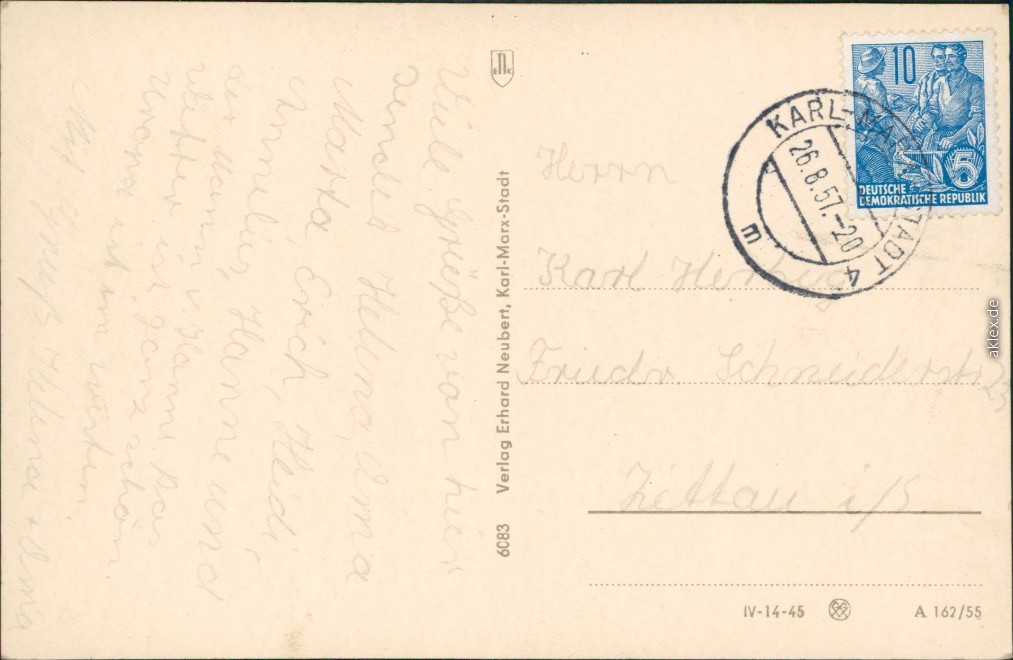 Viele Grüße von hier
senden Helena, Oma
Martha, Erich, Heidi,
Annelies, Hanne und
der Mann v. Hanne. Das
Wetter ist ganz schön
Mit Gruß Helena + Oma
ENK
6083 Verlag Erhard Neubert, Karl-Marx-Stadt
10
5
DEUTSCHE
DEMOKRATISCHE REPUBLIK
KARL-MARX-STADT 4
26.8.57.-20
m
Herrn
Karl Herbig
Friedr. Schneiderstr. 25
Zittau i/S
IV-14-45
A 162/55
aklex.de